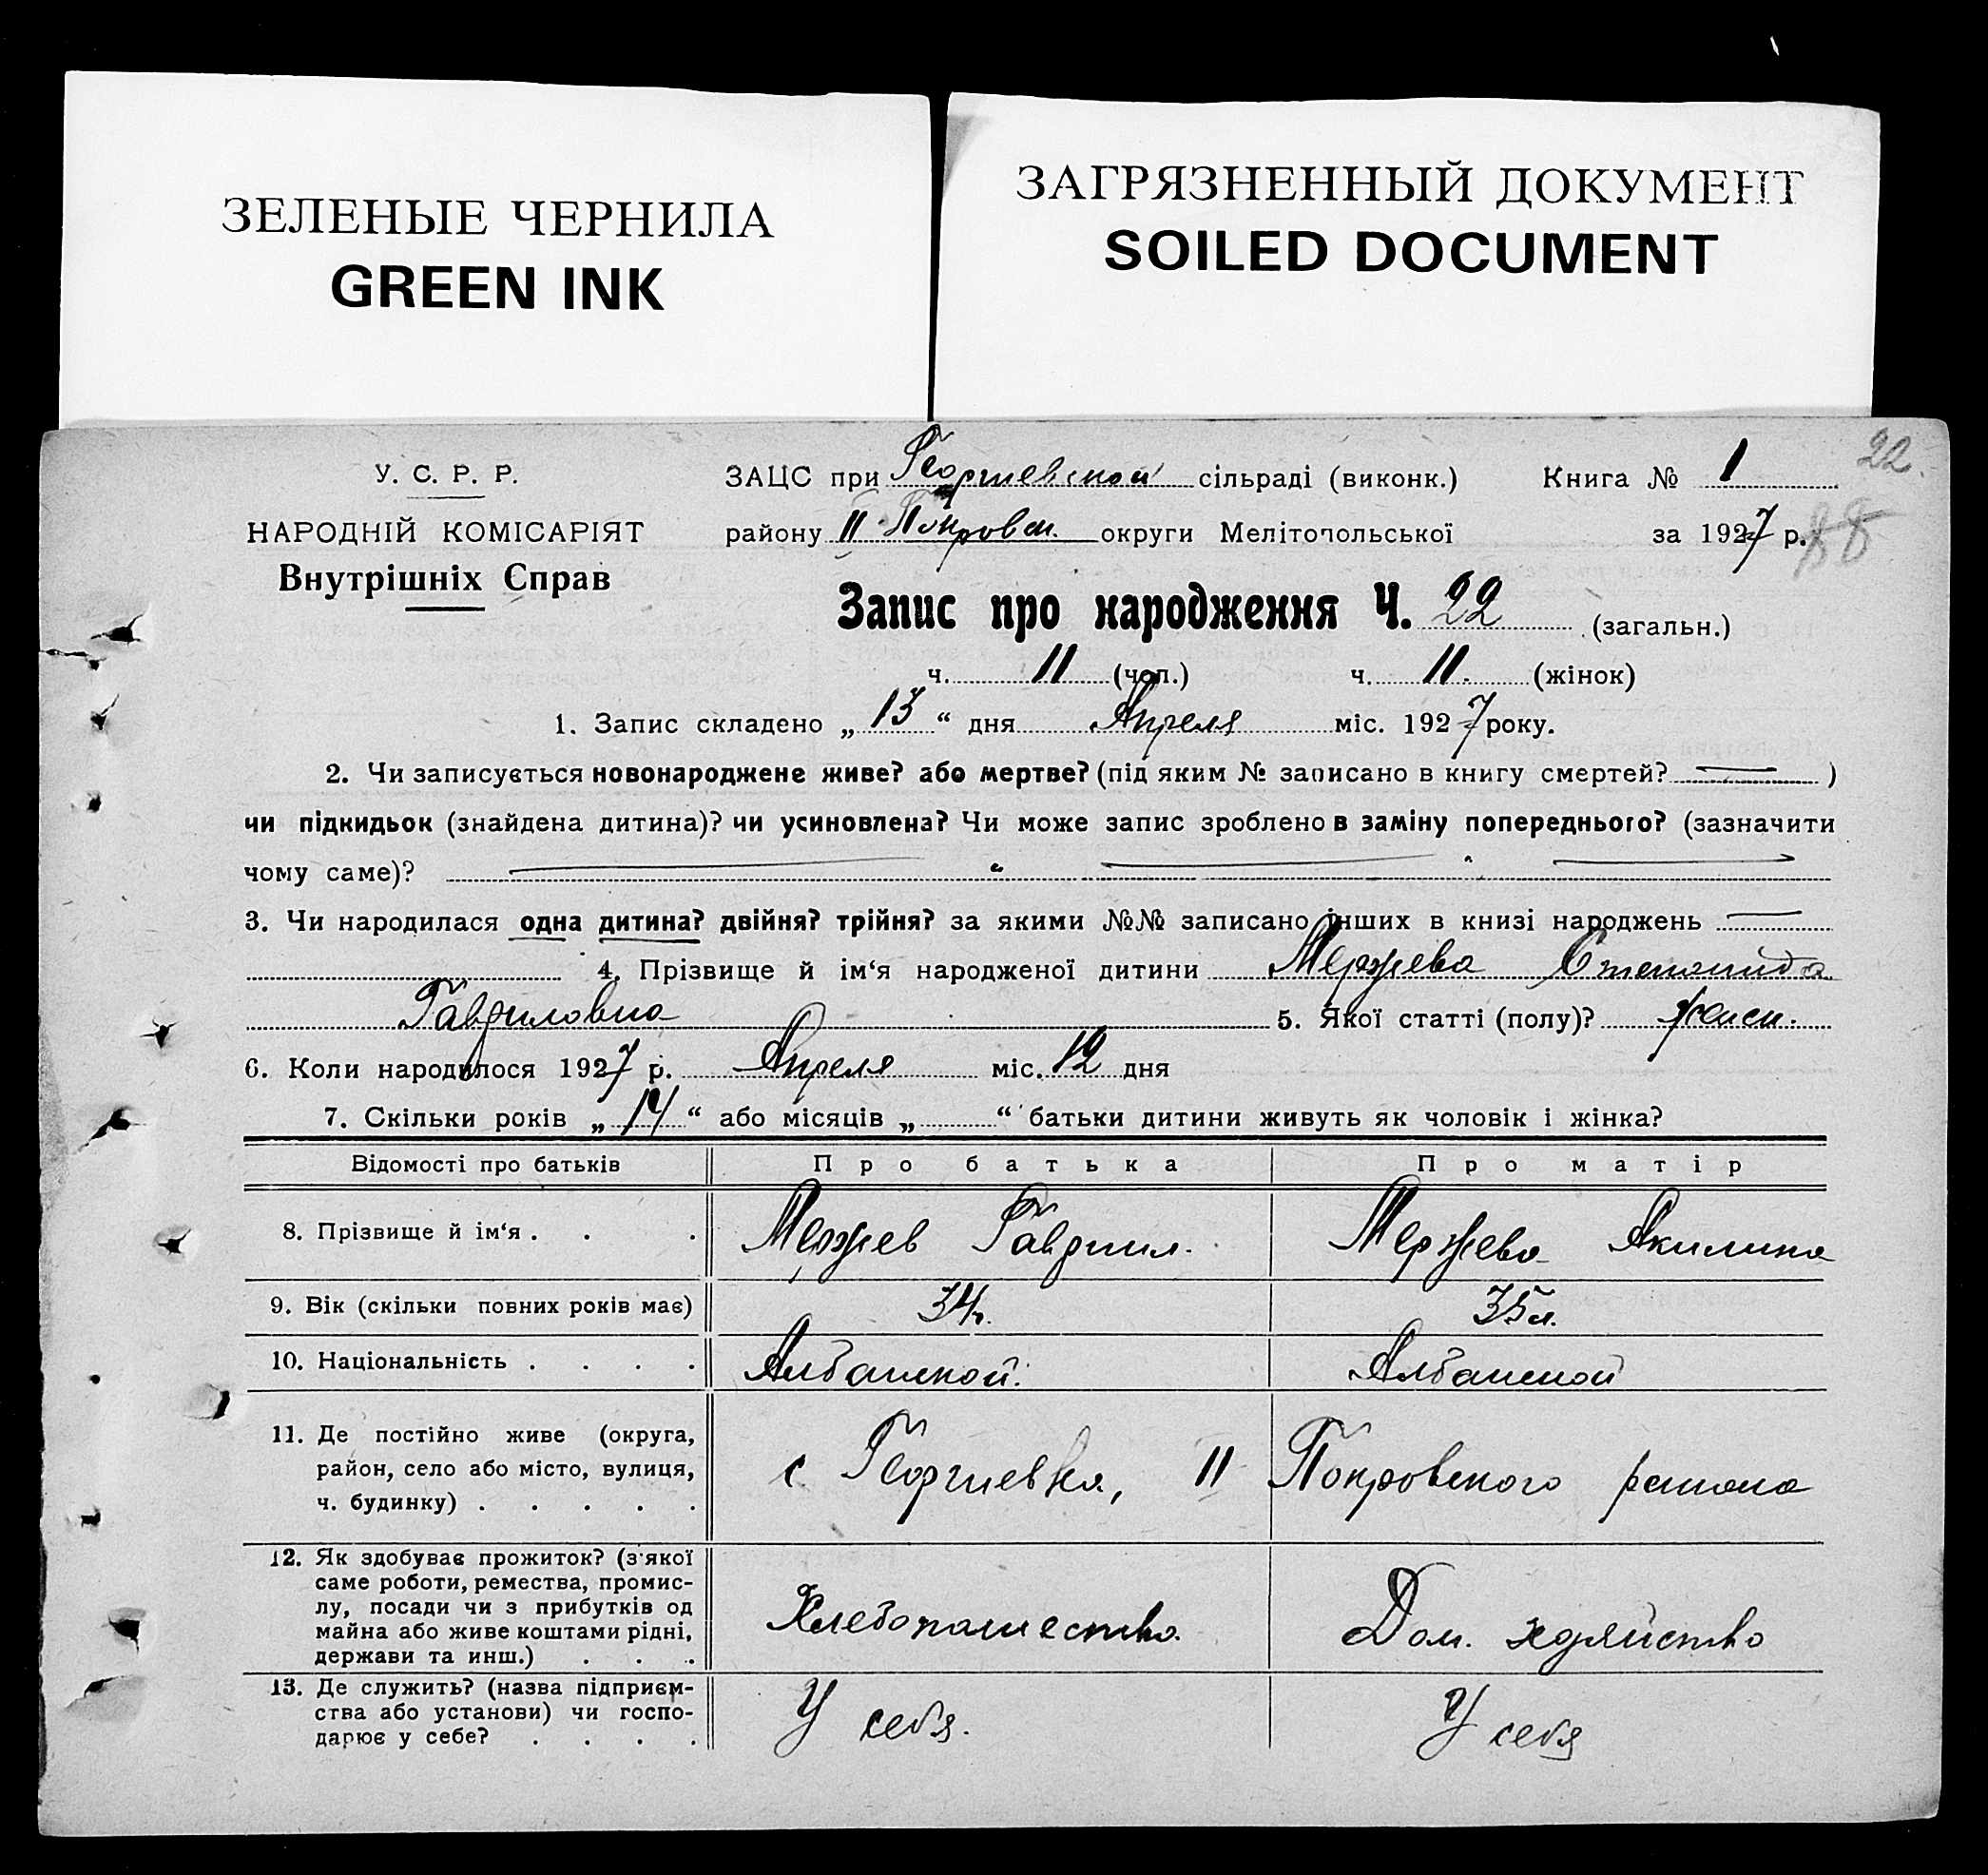 ЗЕЛЕНЫЕ ЧЕРНИЛА
GREEN INK
ЗАГРЯЗНЕННЫЙ ДОКУМЕНТ
SOILED DOCUMENT
22.
88
У. С. Р. Р.
НАРОДНІЙ КОМІСАРІЯТ
Внутрішніх Справ
ЗАЦС при Георгиевской сільраді (виконк.) Книга № 1
району II Покровск. округи Мелітопольської за 1927 р.
Запис про народження Ч. 22 (загальн.)
ч. 11 (чол.) ч. 11. (жінок)
1. Запис складено „ 13 “ дня Апреля міс. 1927 року.
2. Чи записується новонароджене живе? або мертве? (під яким № записано в книгу смертей? — )
чи підкидьок (знайдена дитина)? чи усиновлена? Чи може запис зроблено в заміну попереднього? (зазначити
чому саме)? — „ — „ —
3. Чи народилася одна дитина? двійня? трійня? за якими №№ записано інших в книзі народжень —
4. Прізвище й ім‘я народженої дитини Мержева Степанида
Гавриловна 5. Якої статті (полу)? женск.
6. Коли народилося 1927 р. Апреля міс. 12 дня
7. Скільки років „ 14 “ або місяців „ “ батьки дитини живуть як чоловік і жінка?
Відомості про батьків Про батька Про матір
8. Прізвище й ім‘я . . . Мержев Гавриил. Мержева Акилина
9. Вік (скільки повних років має) 34г. 35л.
10. Національність . . . . Албанской. Албанской
11. Де постійно живе (округа,
район, село або місто, вулиця,
ч. будинку) . . . . .
с Георгиевка, II Покровского района
12. Як здобуває прожиток? (з якої
саме роботи, ремества, промис-
лу, посади чи з прибутків од
майна або живе коштами рідні,
держави та инш.) . . .
Хлебопашество. Дом. хозяйство
13. Де служить? (назва підприєм-
ства або установи) чи госпо-
дарює у себе? . . . .
У себя. У себя